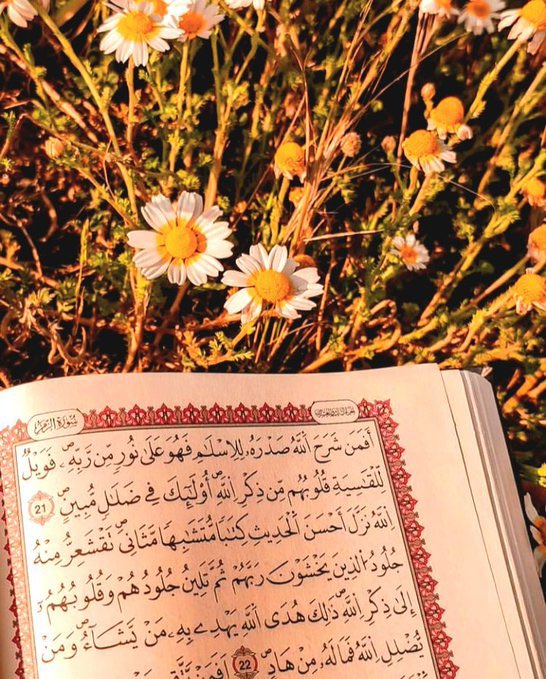 سُورَةُ الزُّمَرِ
أَفَمَن شَرَحَ اَللَّهُ صَدْرَهُۥ لِلِاسْلَٰمِ فَهُوَ عَلَىٰ نُورٍ مِّن رَّبِّهِۦ فَوَيْلٌ
لِّلْقَٰسِيَةِ قُلُوبُهُم مِّن ذِكْرِ اِللَّهِ أُوْلَٰٓئِكَ فِے ضَلَٰلٍ مُّبِينٍ 21
اَللَّهُ نَزَّلَ أَحْسَنَ اَلْحَدِيثِ كِتَٰبًا مُّتَشَٰبِهًا مَّثَانِيَ تَقْشَعِرُّ مِنْهُ
جُلُودُ اُلذِينَ يَخْشَوْنَ رَبَّهُمْ ثُمَّ تَلِينُ جُلُودُهُمْ وَقُلُوبُهُمُۥٓ
إِلَىٰ ذِكْرِ اِللَّهِ ذَٰلِكَ هُدَى اَللَّهِ يَهْدِے بِهِۦ مَنْ يَّشَآءُ وَمَنْ
يُّضْلِلِ اِللَّهُ فَمَا لَهُۥ مِنْ هَادٍ 22 أَفَمَنْ